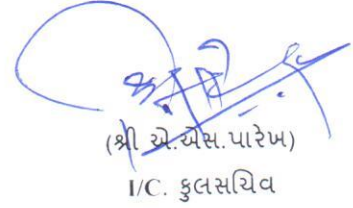 (શ્રી એ.એસ.પારેખ)
I/C. કુલસચિવ